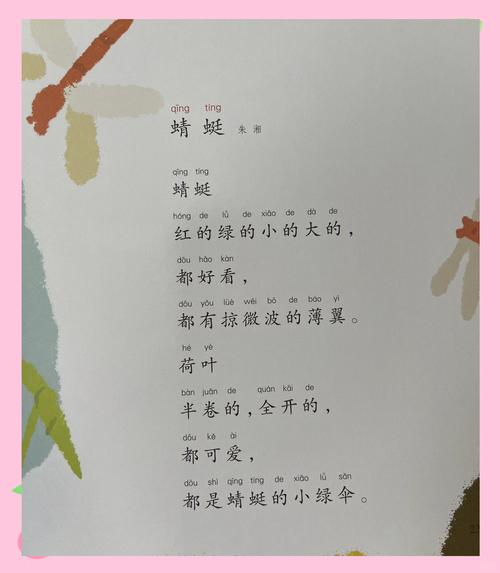 qīng tíng
蜻蜓 朱湘
qīng tíng
蜻蜓
hóng de lǜ de xiǎo de dà de
红的绿的小的大的，
dōu hǎo kàn
都好看，
dōu yǒu lüè wēi bō de báo yì
都有掠微波的薄翼。
hé yè
荷叶
bàn juǎn de quán kāi de
半卷的，全开的，
dōu kě ài
都可爱，
dōu shì qīng tíng de xiǎo lǜ sǎn
都是蜻蜓的小绿伞。